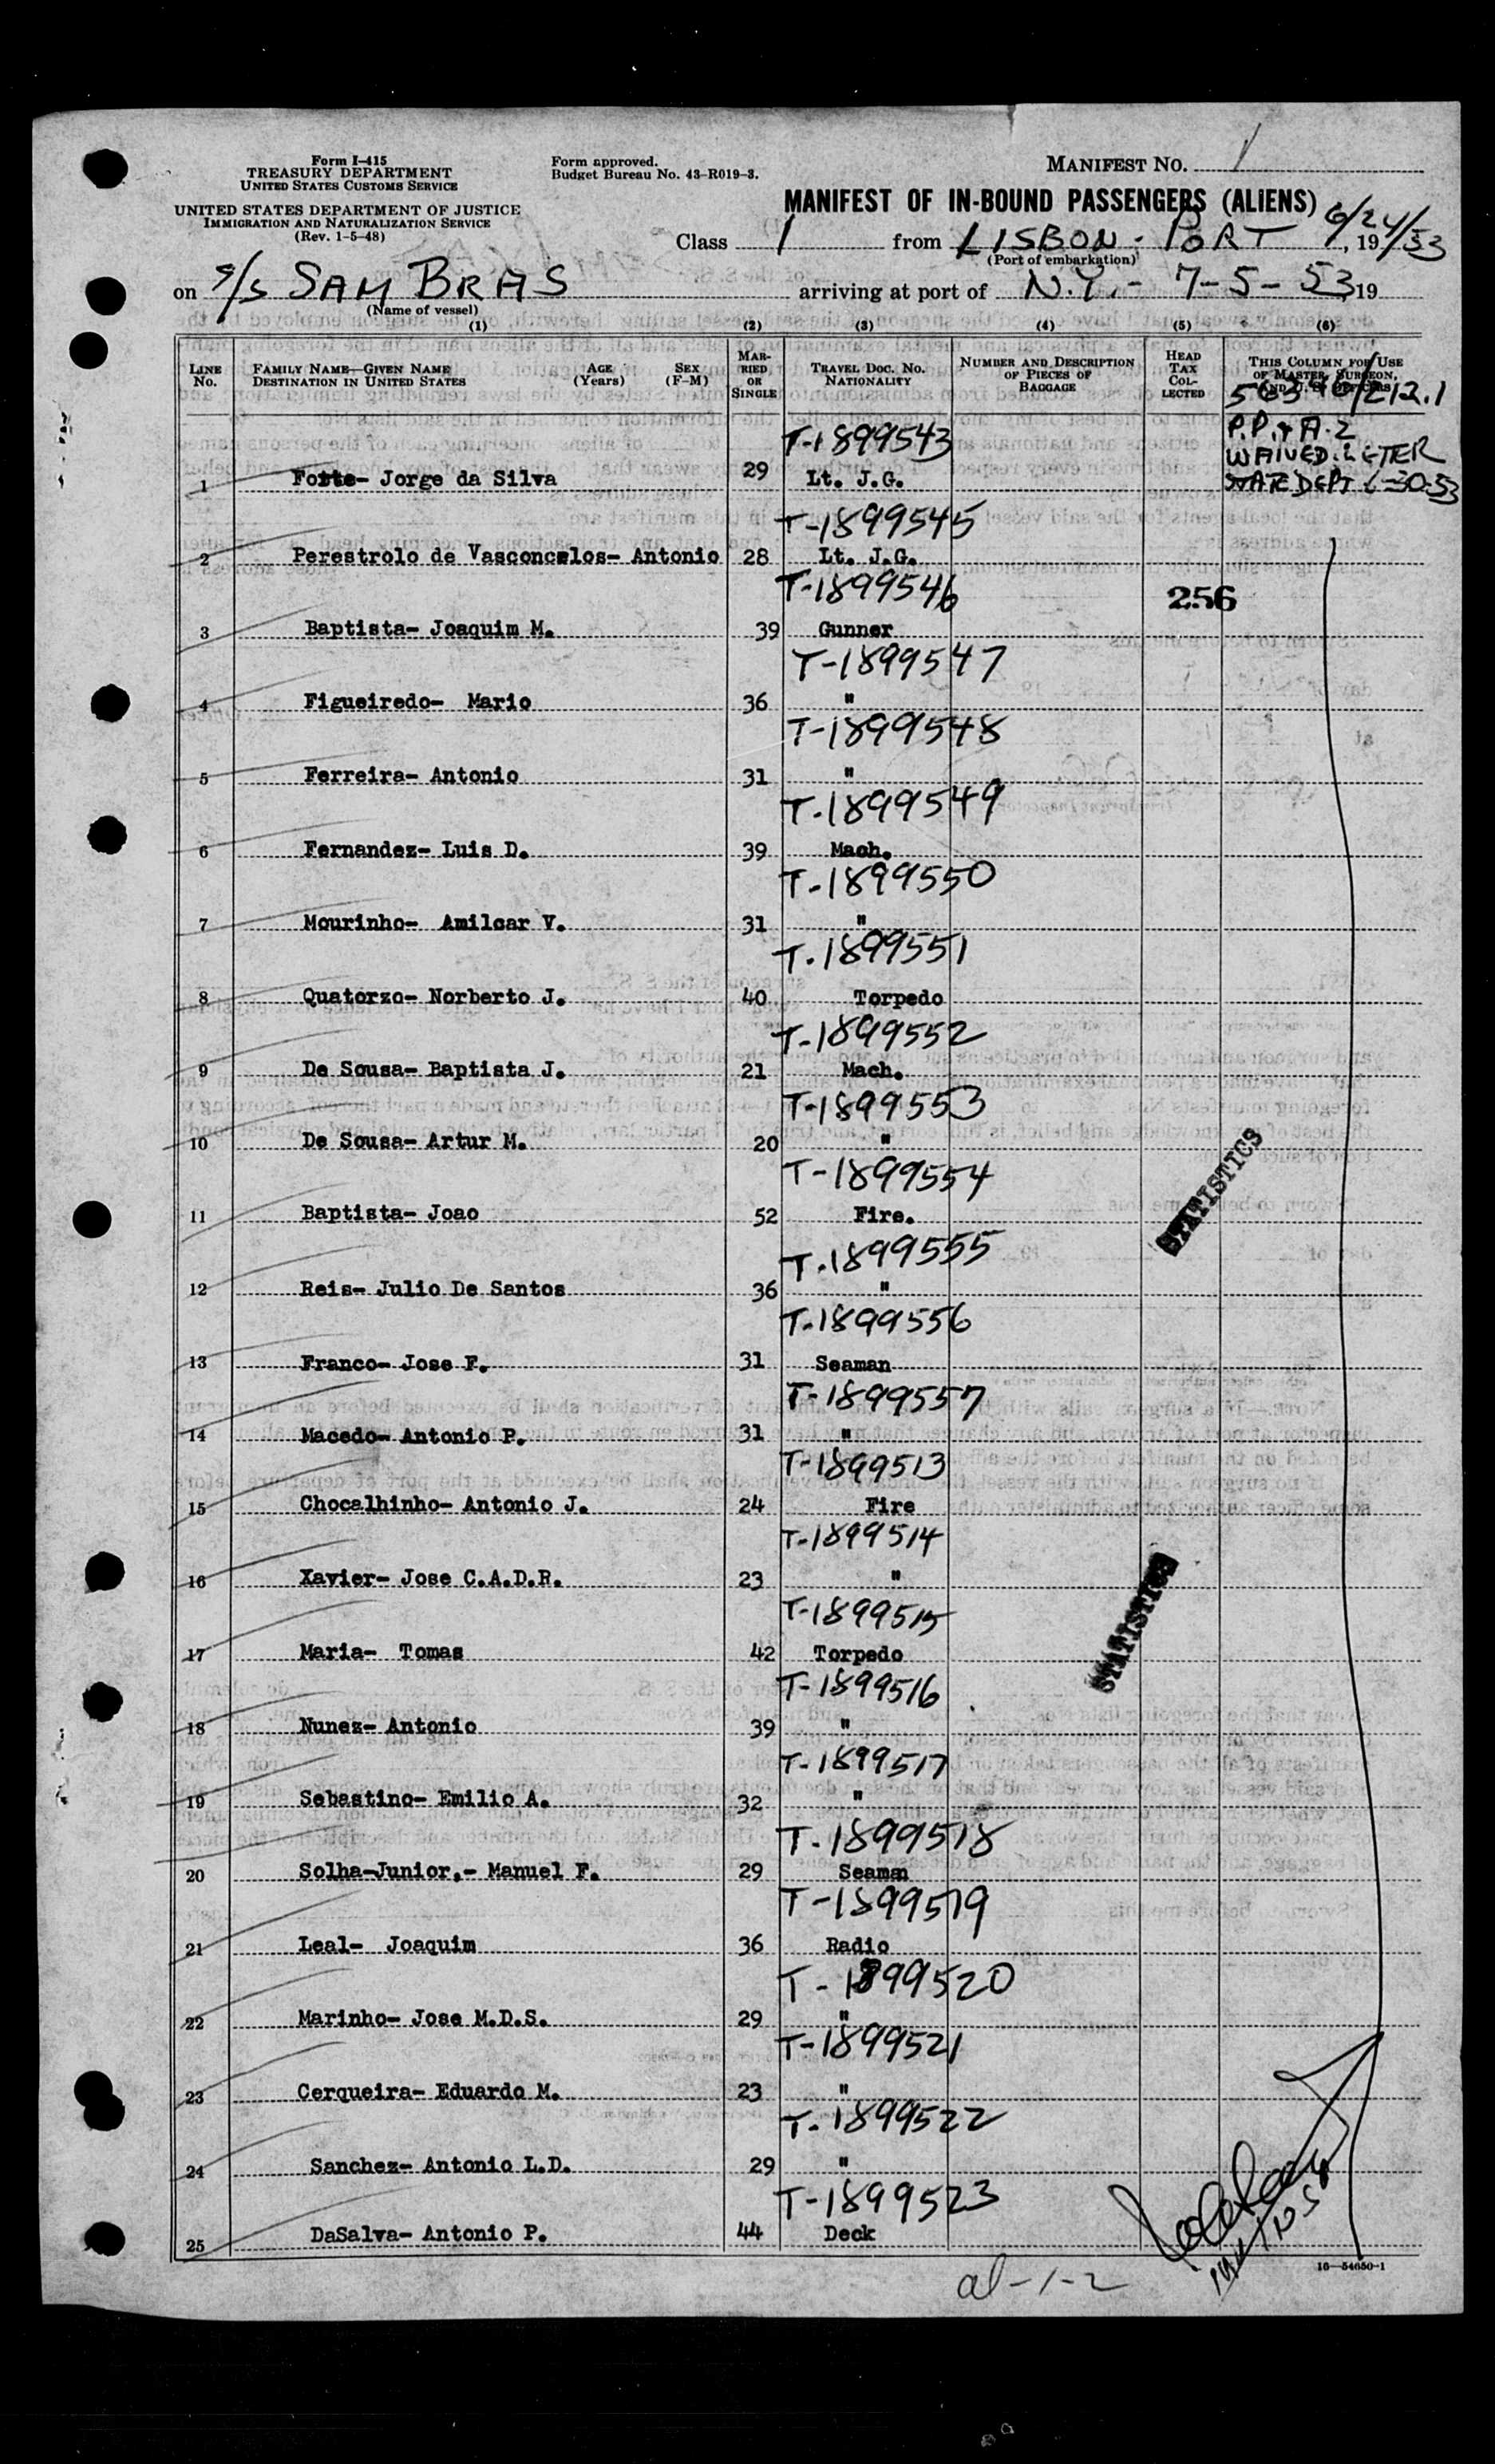 Form I-415
TREASURY DEPARTMENT
UNITED STATES CUSTOMS SERVICE
UNITED STATES DEPARTMENT OF JUSTICE
IMMIGRATION AND NATURALIZATION SERVICE
(Rev. 1-5-48)
Form approved.
Budget Bureau No. 43-R019-3.
MANIFEST NO. 1
MANIFEST OF IN-BOUND PASSENGERS (ALIENS)
Class 1 from LISBON - PORT 6/24/53, 19
(Port of embarkation)
on S/S SAM BRAS arriving at port of N.Y. - 7-5-53 19
(Name of vessel)
(1) (2) (3) (4) (5) (6)
LINE No. FAMILY NAME—GIVEN NAME DESTINATION IN UNITED STATES AGE (Years) SEX (F-M) MARRIED OR SINGLE TRAVEL DOC. NO. NATIONALITY NUMBER AND DESCRIPTION OF PIECES OF BAGGAGE HEAD TAX COLLECTED THIS COLUMN FOR USE OF MASTER, SURGEON, AND U. S. OFFICERS
56340/212.1
P.P. & A-2
WAIVED LETER
STATE DEPT 6-30-53
T-1899543
1 Forte- Jorge da Silva 29 Lt. J.G.
T-1899545
2 Perestrolo de Vasconcelos- Antonio 28 Lt. J.G.
T-1899546
256
3 Baptista- Joaquim M. 39 Gunner
T-1899547
4 Figueiredo- Mario 36 "
T-1899548
5 Ferreira- Antonio 31 "
T-1899549
6 Fernandez- Luis D. 39 Mach.
T-1899550
7 Mourinho- Amilcar V. 31 "
T-1899551
8 Quatorzo- Norberto J. 40 Torpedo
T-1899552
9 De Sousa- Baptista J. 21 Mach.
T-1899553
10 De Sousa- Artur M. 20 "
STATISTICS
T-1899554
11 Baptista- Joao 52 Fire.
T-1899555
12 Reis- Julio De Santos 36 "
T-1899556
13 Franco- Jose F. 31 Seaman
T-1899557
14 Macedo- Antonio P. 31 "
T-1899513
15 Chocalhinho- Antonio J. 24 Fire
T-1899514
16 Xavier- Jose C.A.D.R. 23 "
STATISTICS
T-1899515
17 Maria- Tomas 42 Torpedo
T-1899516
18 Nunez- Antonio 39 "
T-1899517
19 Sebastino- Emilio A. 32 "
T-1899518
20 Solha-Junior,- Manuel F. 29 Seaman
T-1899519
21 Leal- Joaquim 36 Radio
T-1899520
22 Marinho- Jose M.D.S. 29 "
T-1899521
23 Cerqueira- Eduardo M. 23 "
T-1899522
24 Sanchez- Antonio L.D. 29 "
T-1899523
25 DaSalva- Antonio P. 44 Deck
16—54650-1
al-1-2